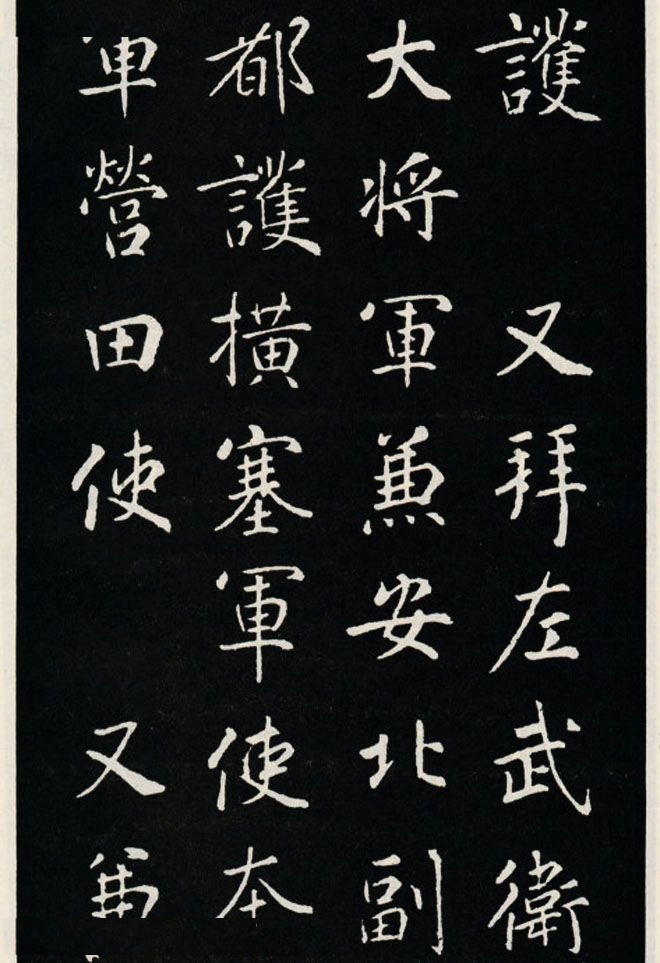 護 又拜左武衛
大将軍兼安北副
都護橫塞軍使本
軍營田使 又